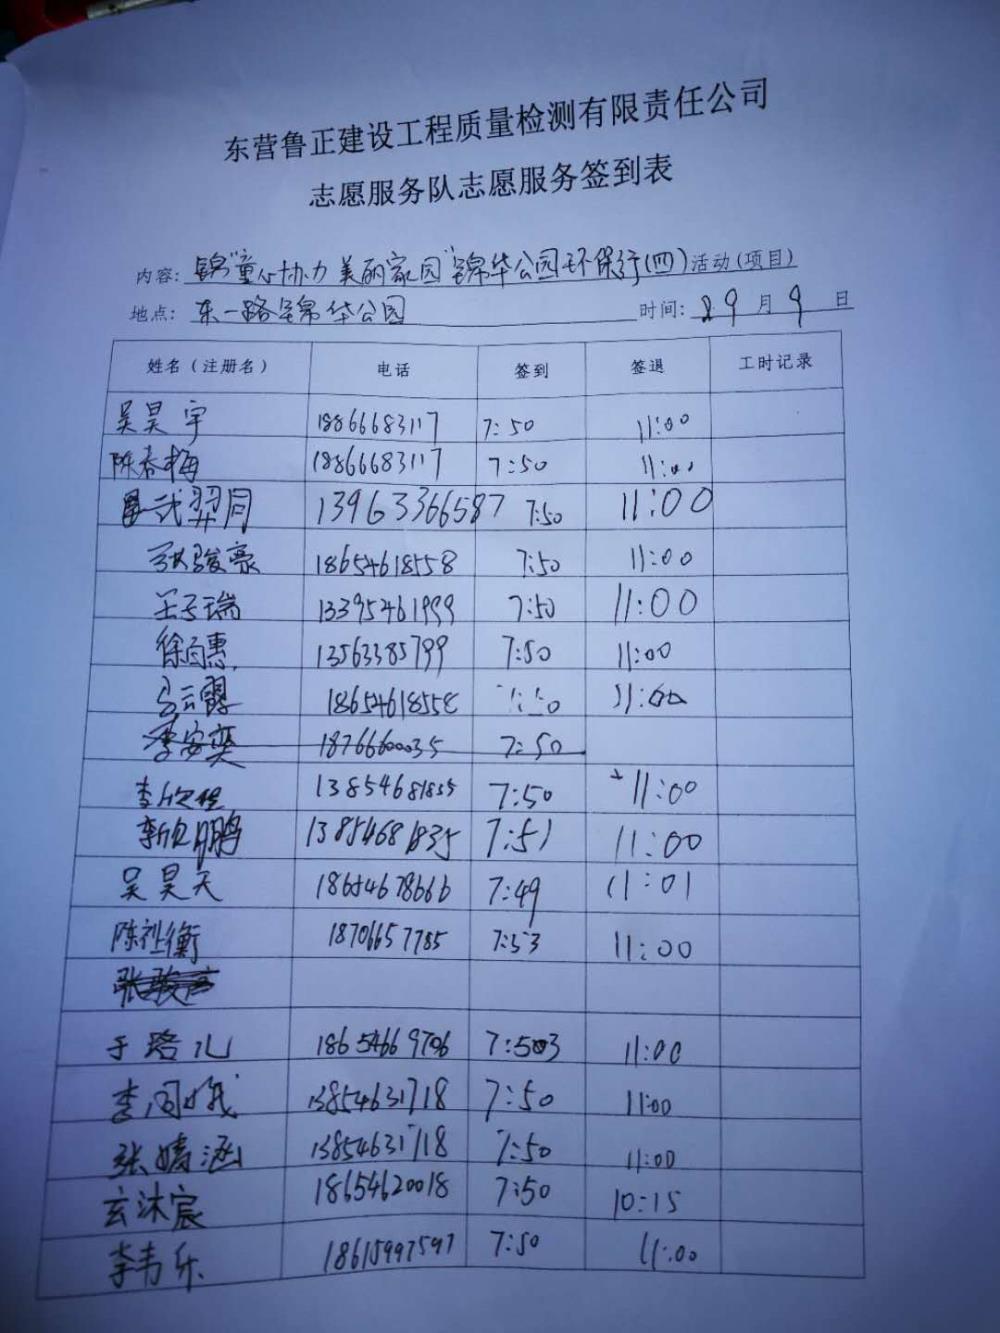 东营鲁正建设工程质量检测有限责任公司
志愿服务队志愿服务签到表
内容: 锦"童心协力 美丽家园"锦华公园环保行(四) 活动(项目)
地点: 东一路锦华公园 时间: 9月9日
姓名(注册名) 电话 签到 签退 工时记录
吴昊宇 18866683117 7:50 11:00
陈春梅 18866683117 7:50 11:00
武羿同 13963366587 7:50 11:00
张骏豪 18654618558 7:50 11:00
王子瑞 13395461999 7:50 11:00
徐雨惠 13563385799 7:50 11:00
18654618558 11:00
李安奕 18766600035 7:50
李欣 7:50 11:00
鹏 13854681835 7:51 11:00
吴昊天 18654678666 7:49 11:01
陈祉衡 18706657785 7:53 11:00
张骏
于珞儿 18654669706 7:503 11:00
李同娥 13854631718 7:50 11:00
张婧涵 13854631718 7:50 11:00
玄沐宸 18654620018 7:50 10:15
李韦乐 18615997597 7:50 11:00